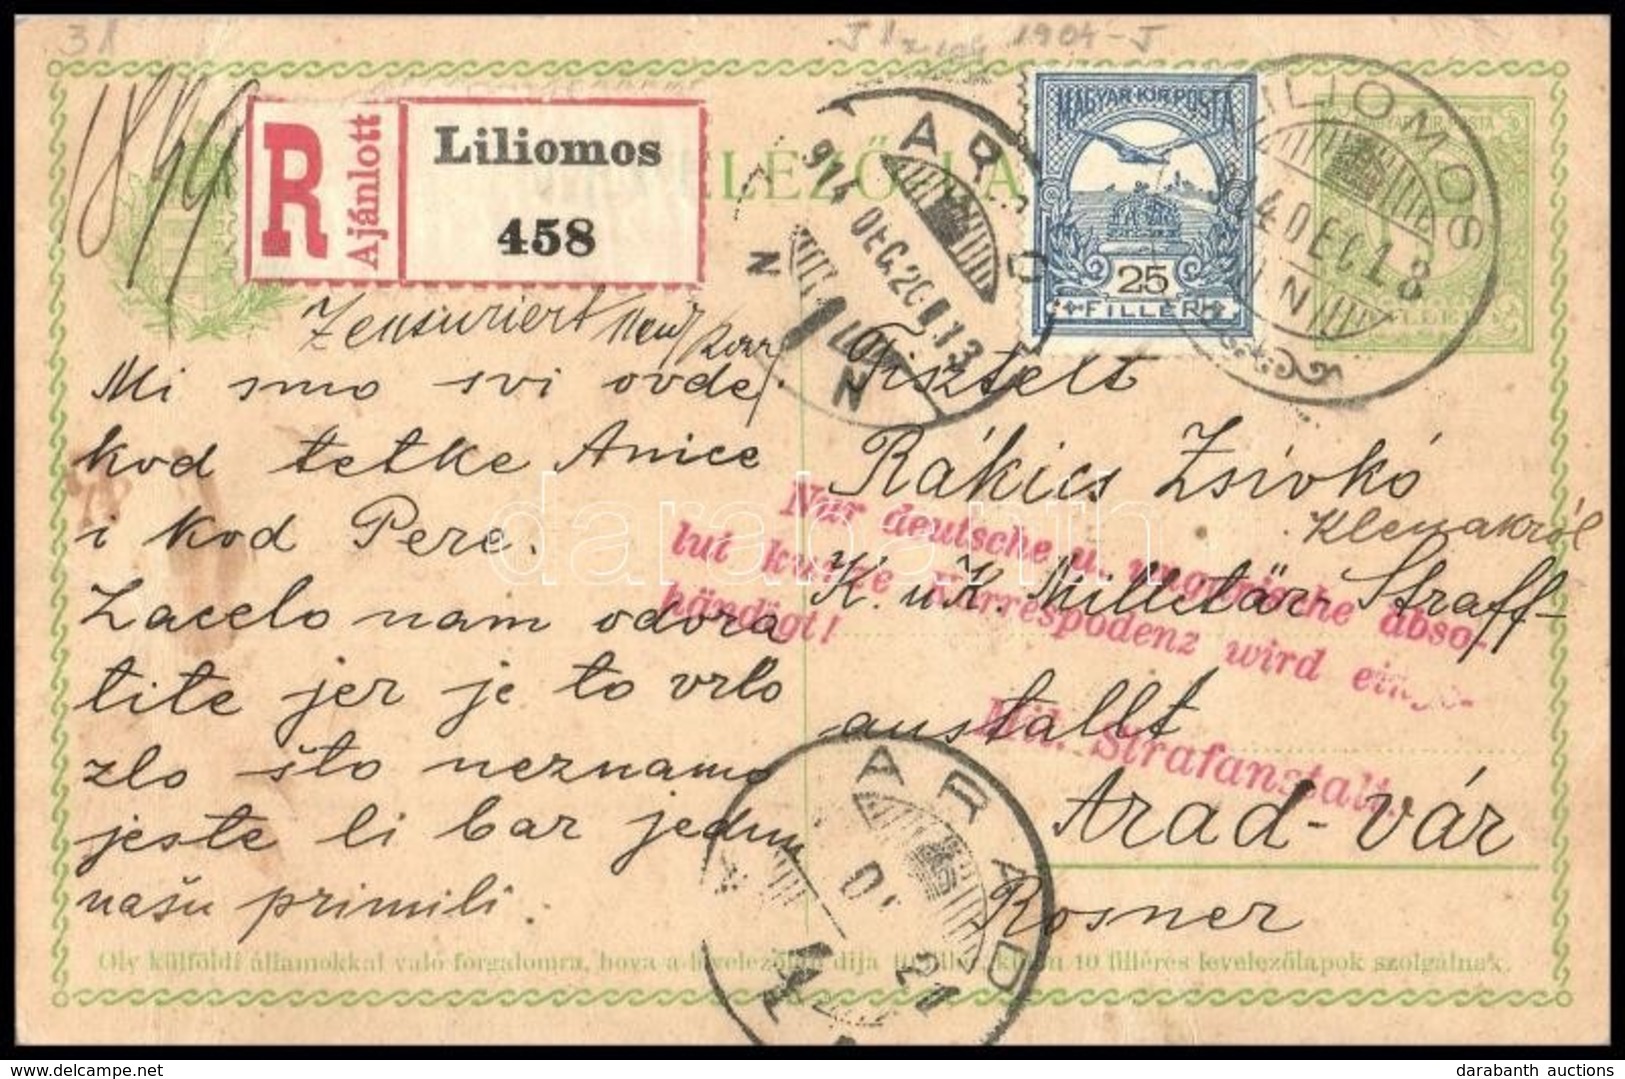 31
1904-J
1849
R
Ajánlott
Liliomos
458
ARAD
914 DEC. 20
N
MAGYAR KIR. POSTA
25
FILLÉR
LILIOMOS
914 DEC 18
N
Zensuriert
Mi smo svi ovde
kod tetke Anice
i kod Pere.
Zacelo nam odora
tite jer je to vrlo
zlo što neznamo
jeste li bar jednu
našu primili.
Tisztelt
Rákics Zsivkó
Klenakról
K. u K. Milletär Straff-
anstallt
Arad-vár
Rosner
Nur deutsche u. ungarische abso-
lut kurze Korrespodenz wird einge-
händigt!
Mil. Strafanstalt.
ARAD
21
Oly külföldi államokkal való forgalomra, hova a levelezőlap dija 10 fillér, külön 10 filléres levelezőlapok szolgálnak.
darabanth
darabanth auctions